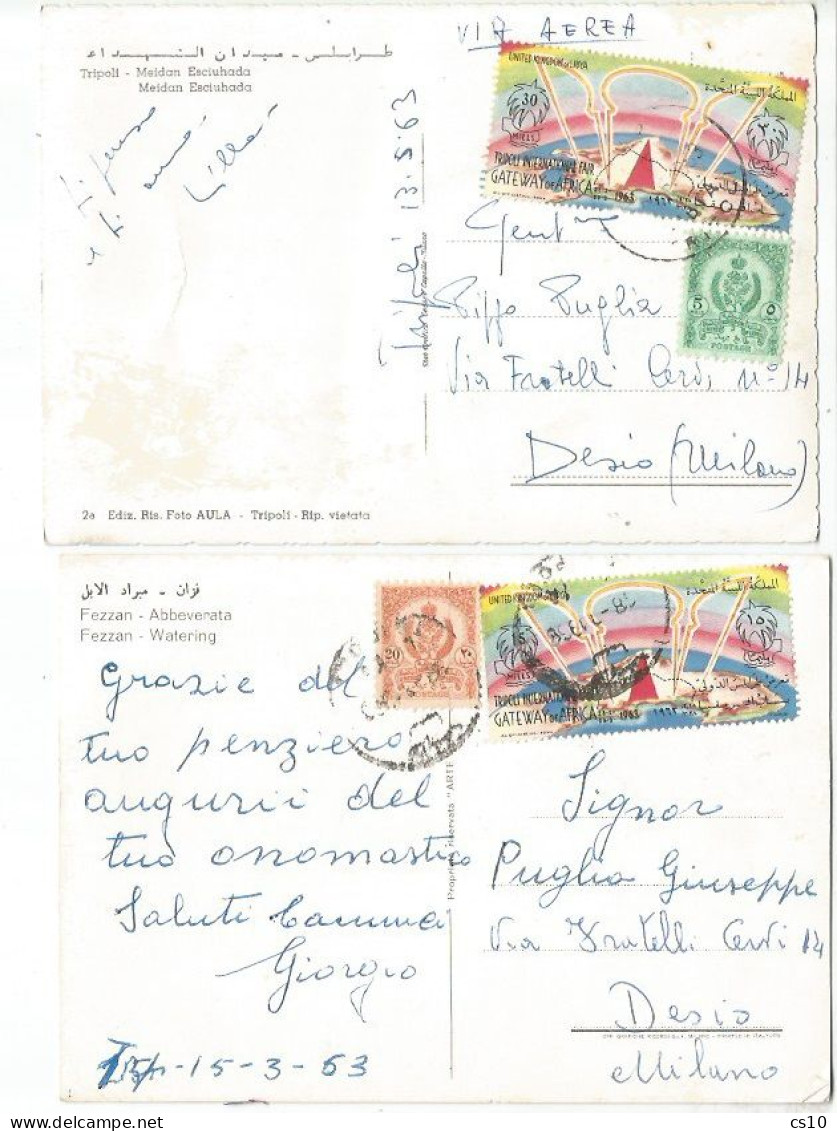 طرابلس - ميدان الشهداء
Tripoli - Meidan Esciuhada
Meidan Esciuhada
VIA AEREA
UNITED KINGDOM OF LIBYA
المملكة الليبية المتحدة
30
MILLS
٣٠
TRIPOLI INTERNATIONAL FAIR
GATEWAY OF AFRICA
1963
١٩٦٣
5
٥
POSTAGE
Tripoli 13.5.63
Pippo Puglia
Via Fratelli Cervi Nº 14
Desio (Milano)
2a Ediz. Ris. Foto AULA - Tripoli - Rip. vietata
فزان - مبراد الابل
Fezzan - Abbeverata
Fezzan - Watering
20
٢٠
POSTAGE
UNITED KINGDOM OF LIBYA
المملكة الليبية المتحدة
MILLS
١٥
TRIPOLI INTERNATIONAL
GATEWAY OF AFRICA
1963
١٩٦٣
Grazie del
tuo penziero
augurii del
tuo onomastico
Saluti Mamma
Giorgio
15-3-63
Proprietà riservata "ARTE
Signor
Puglia Giuseppe
Via Fratelli Cervi 14
Desio
Milano
cs10